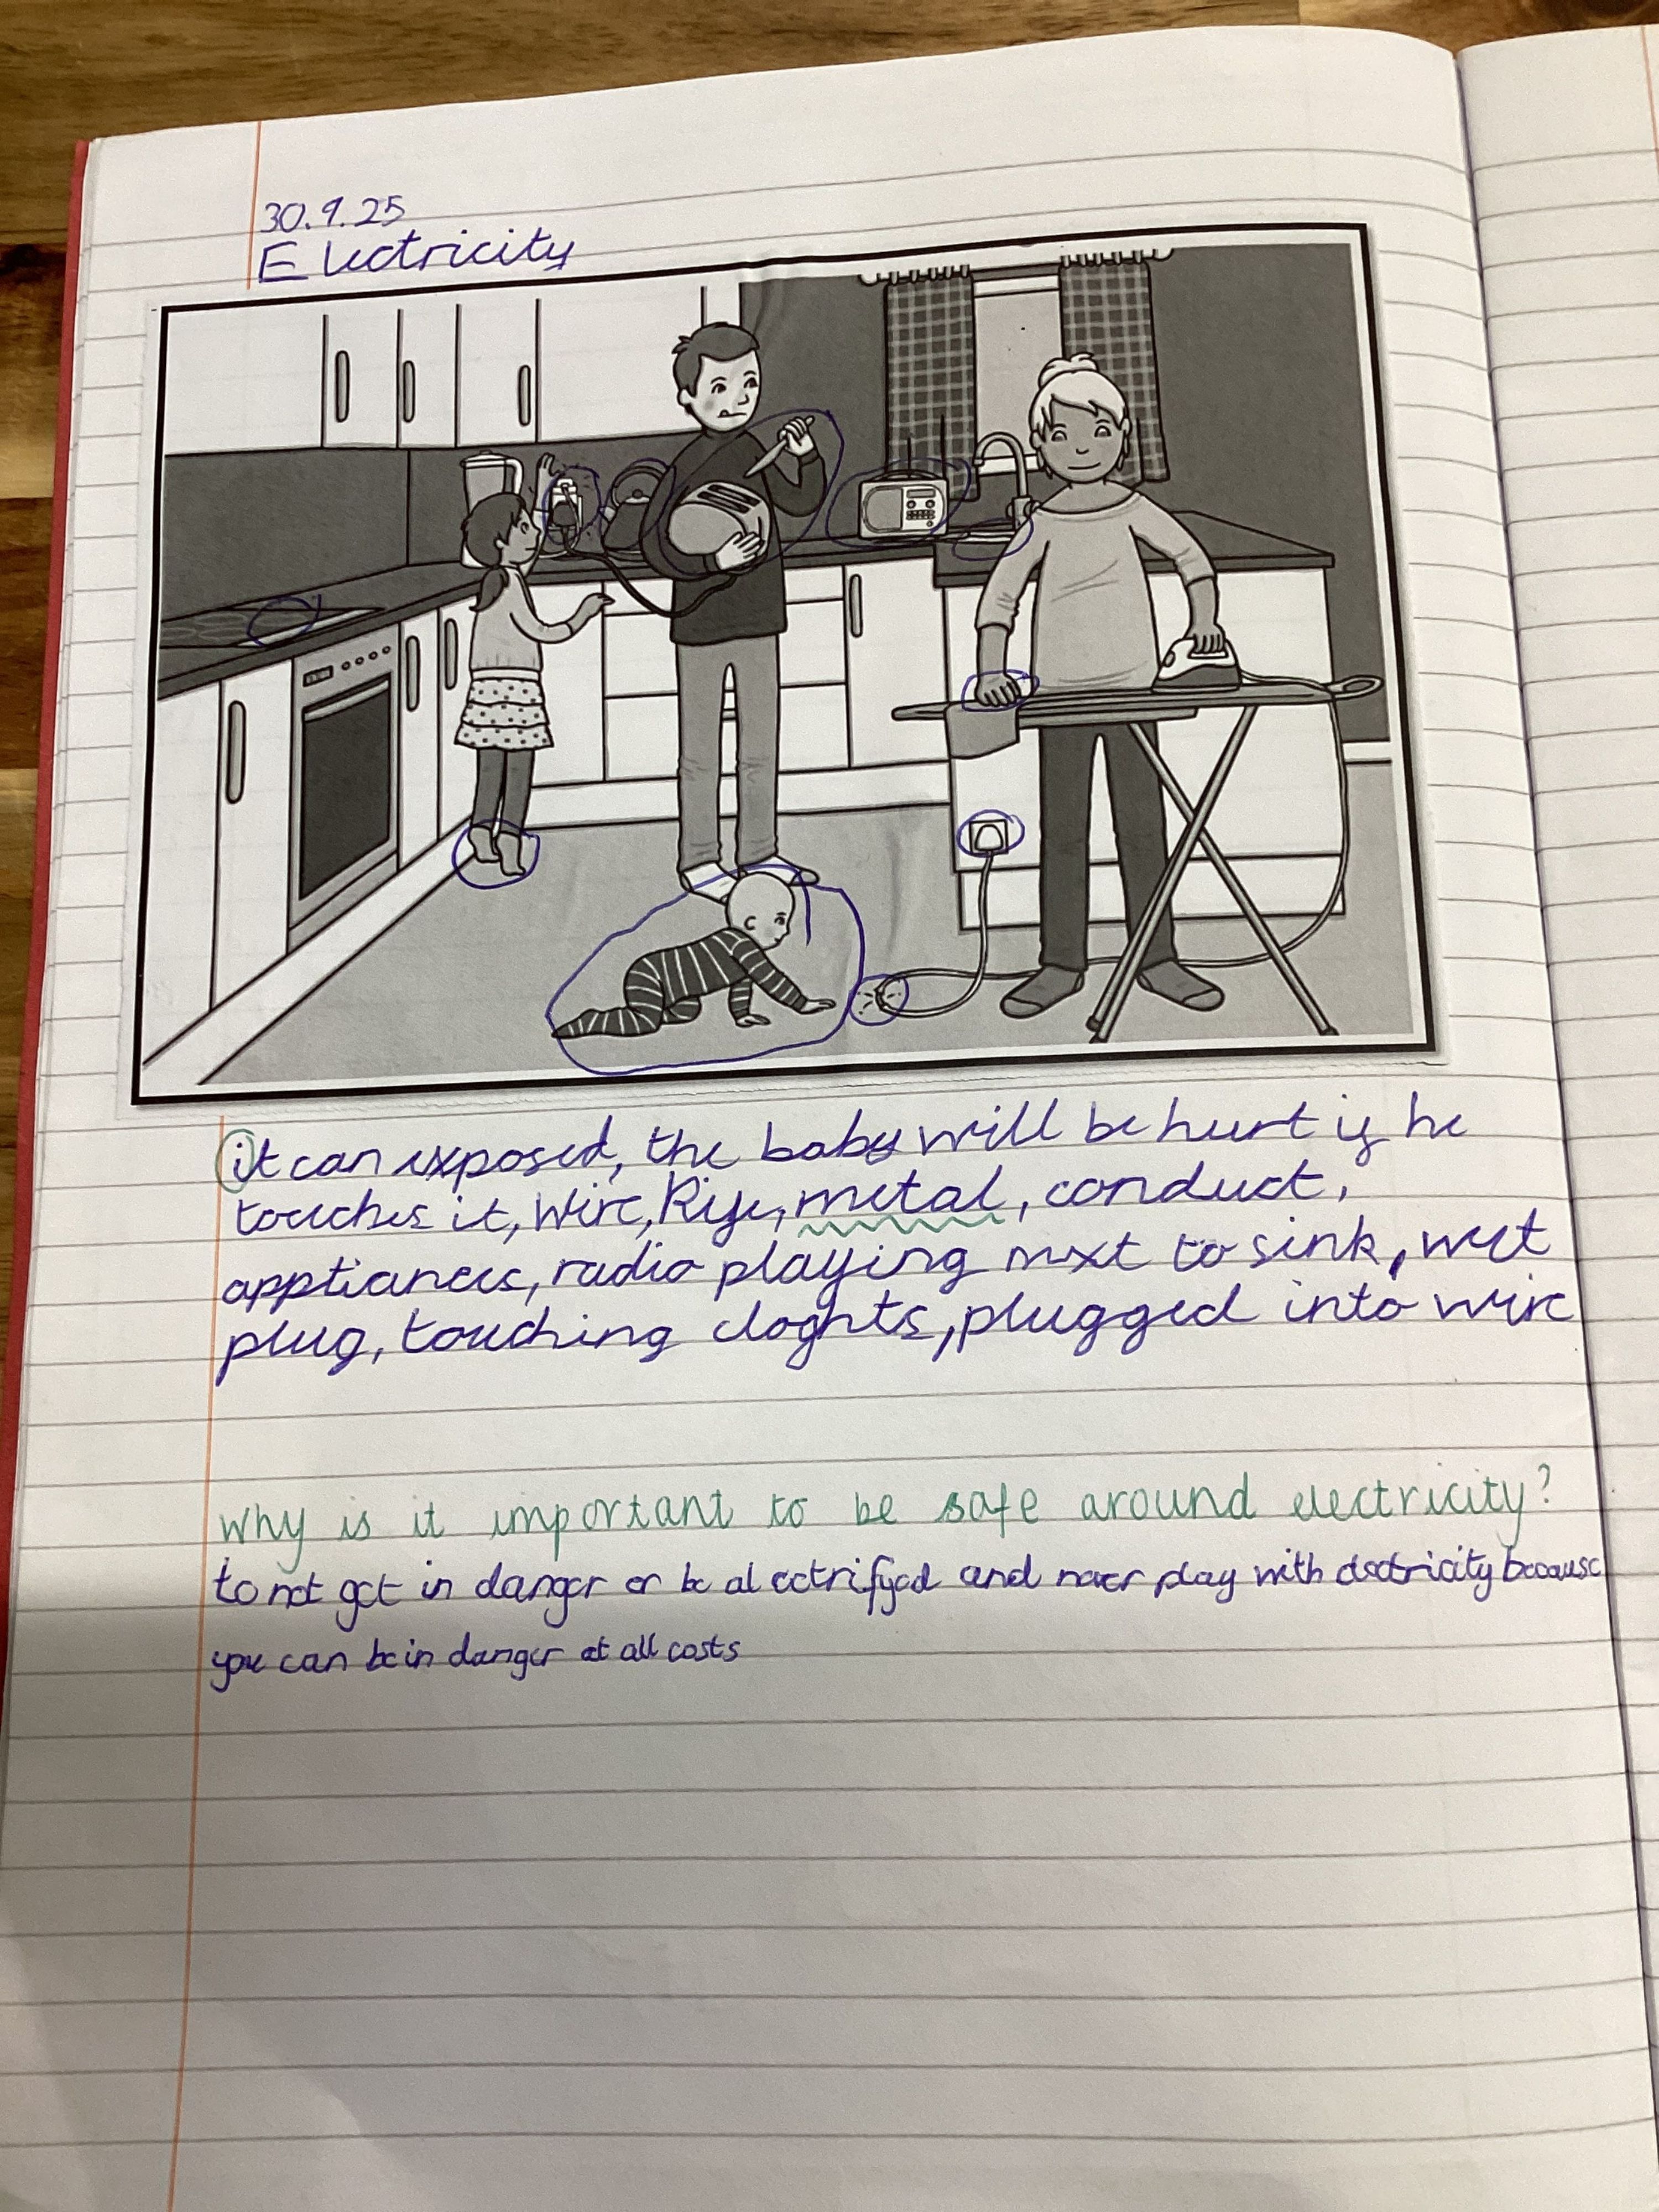 30.9.25
Electricity
it can exposed, the baby will be hurt if he
touches it, Wire, Kife, metal, conduct,
appliances, radio playing next to sink, wet
plug, touching cloghts, plugged into wire
Why is it important to be safe around electricity?
to not get in danger or be alectrifyed and never play with electricity because
you can be in danger at all costs